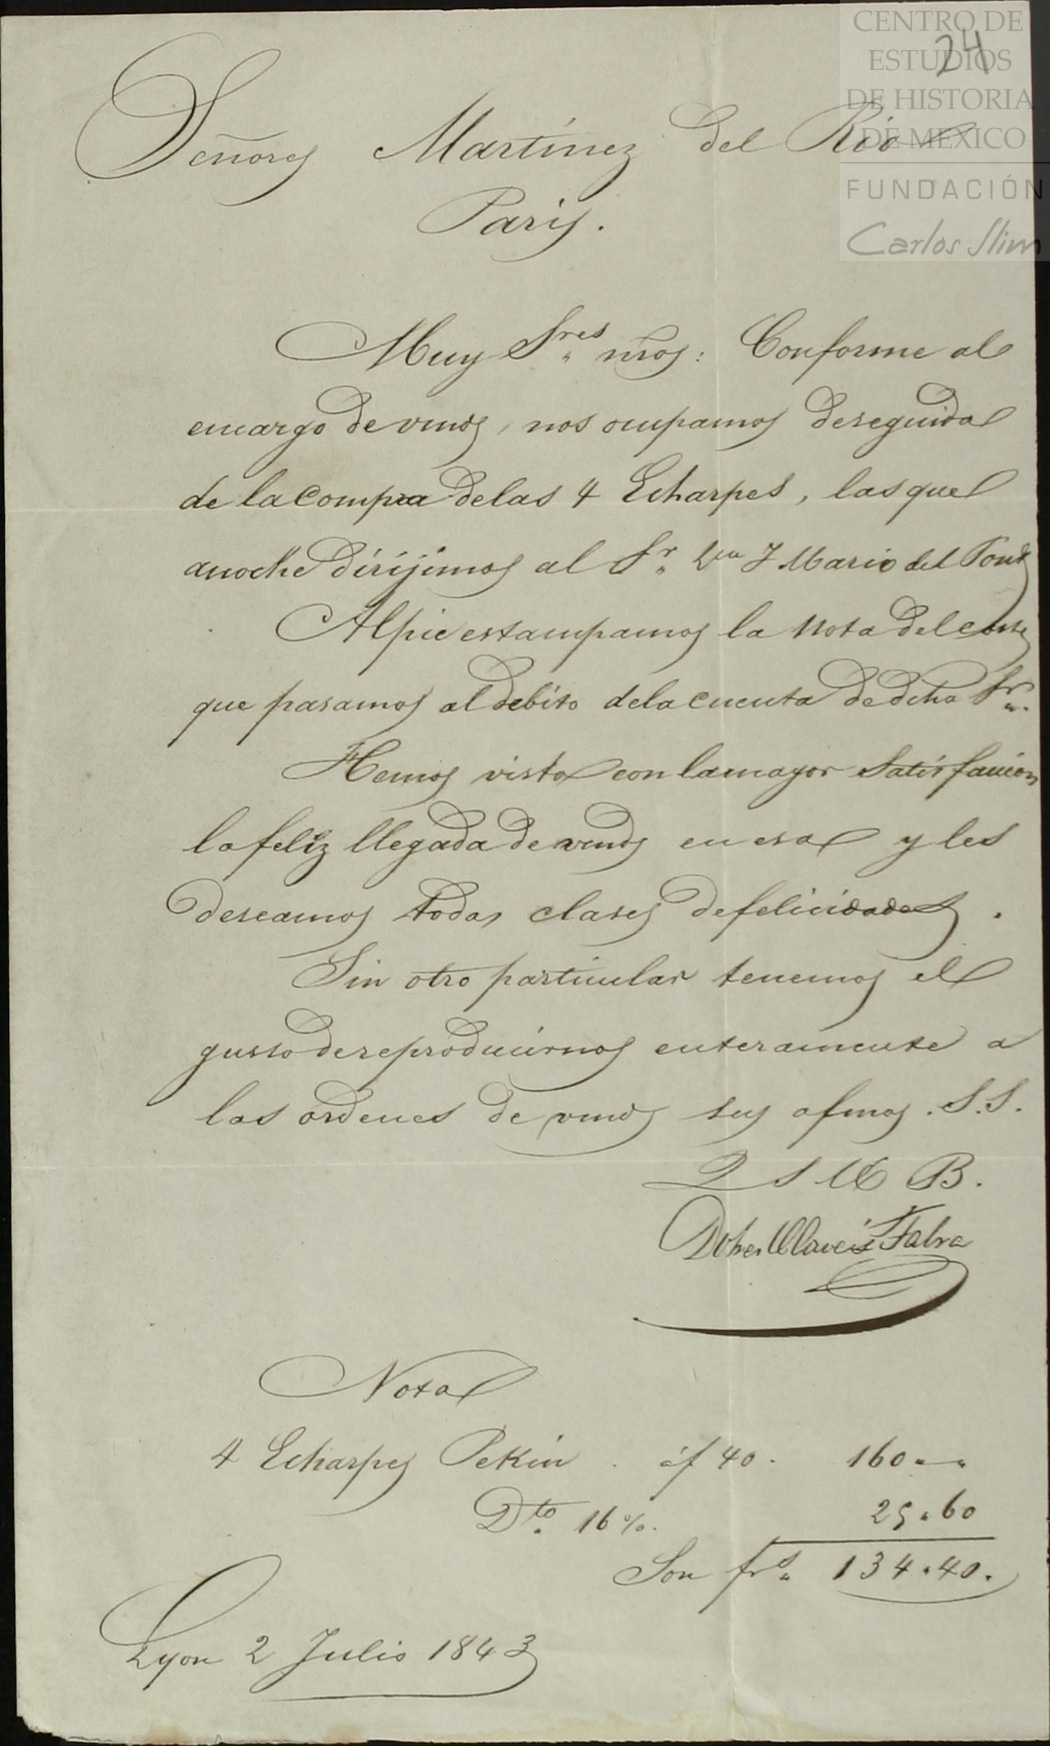 CENTRO DE
ESTUDIOS
DE HISTORIA
DE MEXICO
FUNDACIÓN
Carlos Slim
24
Señores Martínez del Rio
Paris.
Muy Sres nros: Conforme al
encargo de vmds, nos ocupamos deseguida
de la compra delas 4 Echarpes, las que
anoche dirijimos al Sr. J. Mario del Pont
Alpie estampamos la nota del coste
que pasamos al debito dela cuenta de dicho Sr.
Hemos visto con la mayor Satisfaccion
la feliz llegada de vmds en esa y les
deseamos todas clases de felicidades.
Sin otro particular tenemos el
gusto de reproducirnos enteramente a
las ordenes de vmds sus afmos. S.S.
Q S M B.
Fabra
Nota
4 Echarpes Pekin . á f 40. 160 "
Dto. 16 %. 25.60
Son frs. 134.40.
Lyon 2 Julio 1843